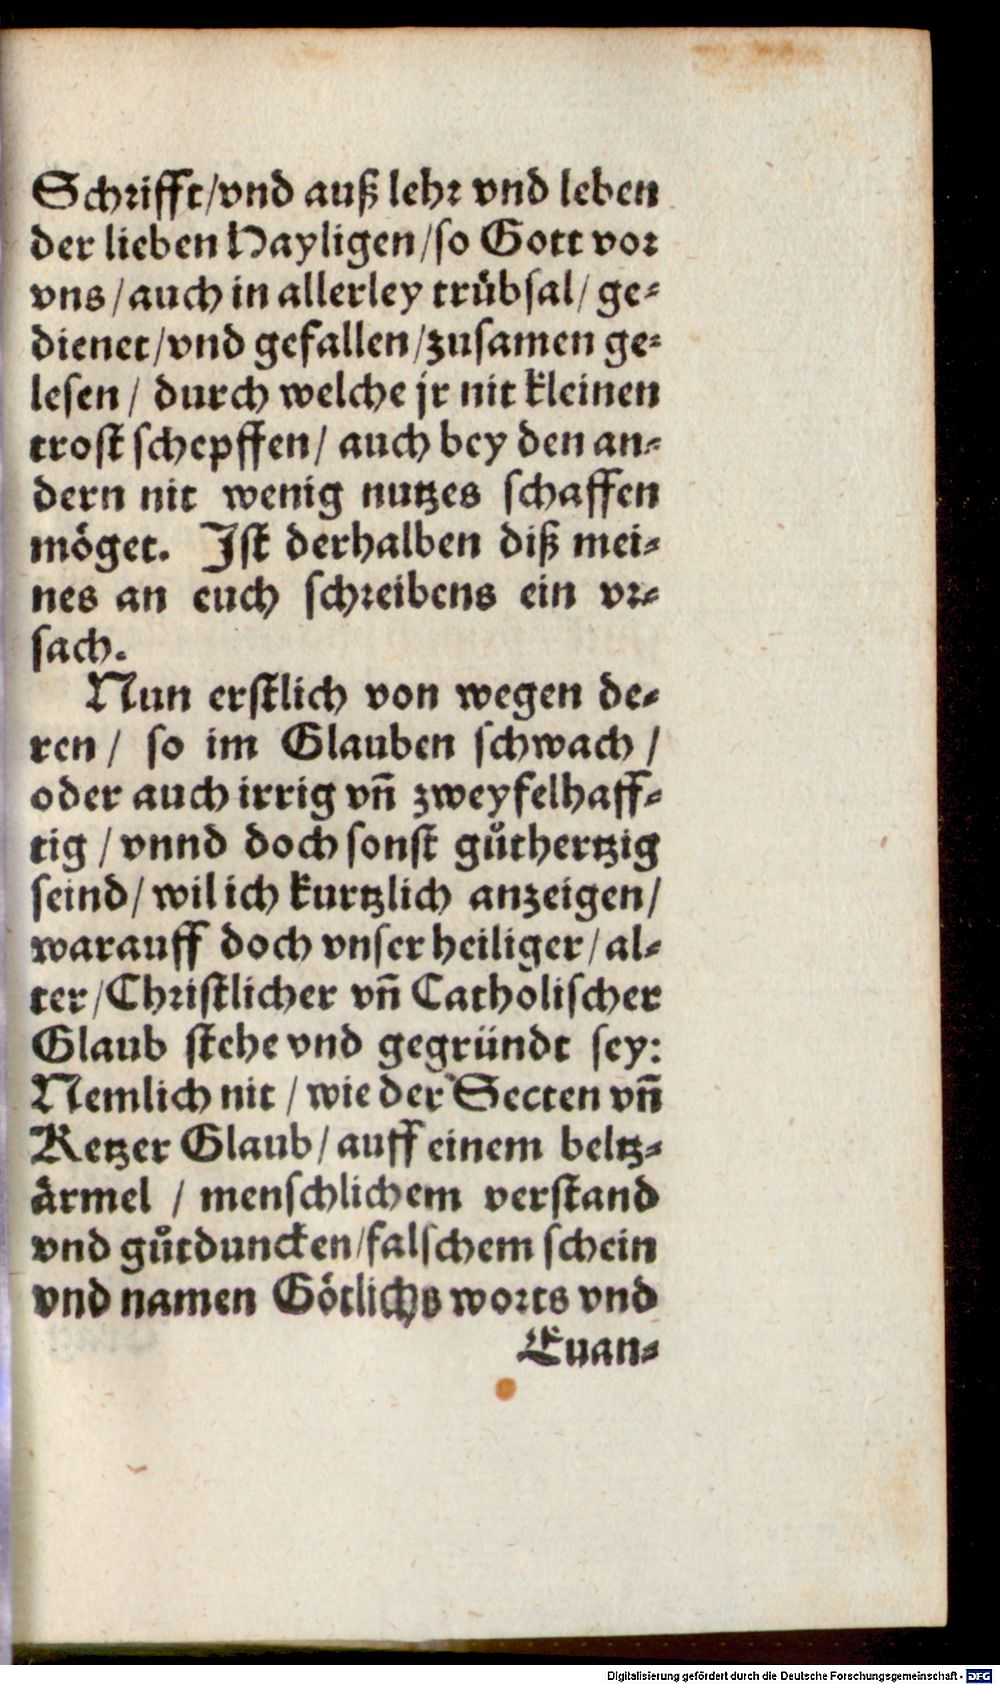 Schrifft/vnd auß lehr vnd leben
der lieben Hayligen/so Gott vor
vns/auch in allerley trůbsal/ ge-
dienet/vnd gefallen/zusamen ge-
lesen/ durch welche jr nit kleinen
trost schepffen/ auch bey den an-
dern nit wenig nutzes schaffen
möget. Ist derhalben diß mei-
nes an euch schreibens ein vr-
sach.
Nun erstlich von wegen de-
ren/ so im Glauben schwach/
oder auch irrig vñ zweyfelhaff-
tig/ vnnd doch sonst gůthertzig
seind/ wil ich kurtzlich anzeigen/
warauff doch vnser heiliger/ al-
ter/Christlicher vñ Catholischer
Glaub stehe vnd gegründt sey:
Nemlich nit/ wie der Secten vñ
Ketzer Glaub/ auff einem beltz-
ärmel/ menschlichem verstand
vnd gůtduncken/falschem schein
vnd namen Götlichs worts vnd
Euan-
Digitalisierung gefördert durch die Deutsche Forschungsgemeinschaft - DFG